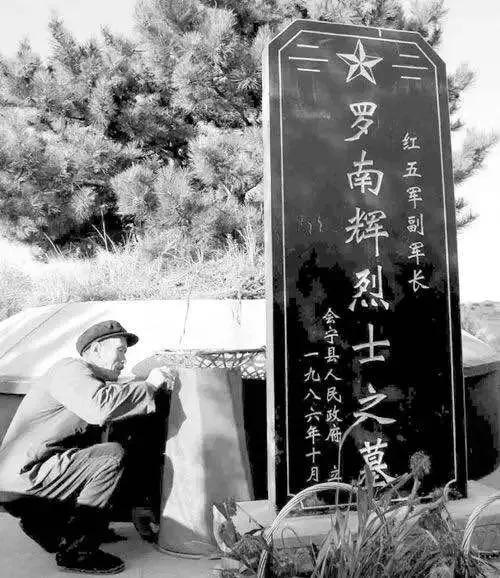 红五军副军长
罗南辉烈士之墓
会宁县人民政府 立
一九八六年十月